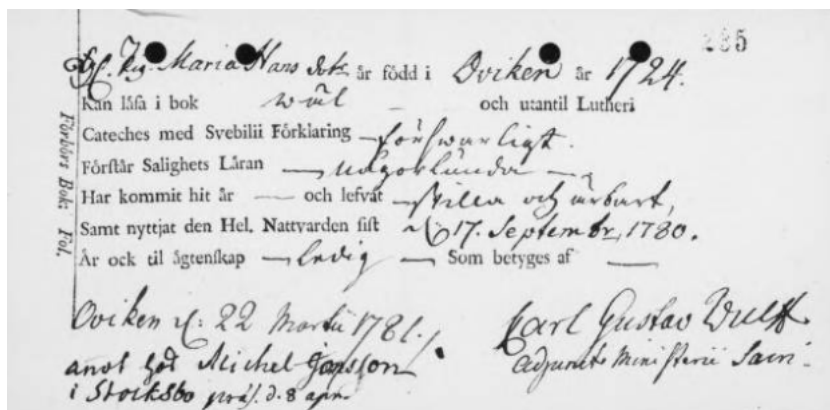 285
Maria Hans dotr är född i Oviken år 1724.
Kan låsa i bok wäl – och utantil Lutheri
Cateches med Svebilii Förklaring – förswarligt.
Förstår Salighets Låran – någorlunda –
Har kommit hit år — och lefvat – stilla och ärbart,
Samt nyttjat den Hel. Nattvarden sist d. 17. Septembr, 1780.
År ock til ägtenskap – ledig – Som betyges af —
Förhörs Bok: Fol.
Oviken d: 22 Martii 1781.
Carl Gustav Wulff
Adjunct Ministerii Sacri.
Michel Jonsson
i Stocksbo präs. d. 8 apr.